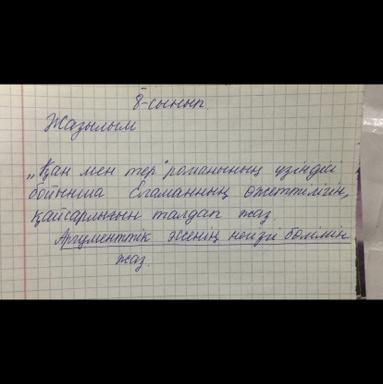 8-сынып.
Жазылым
„Қан мен тер" романының үзіндісі
бойынша Еламанның өжеттілігін,
қайсарлығын талдап жаз
Аргументтік эссенің негізгі бөлімін
жаз.